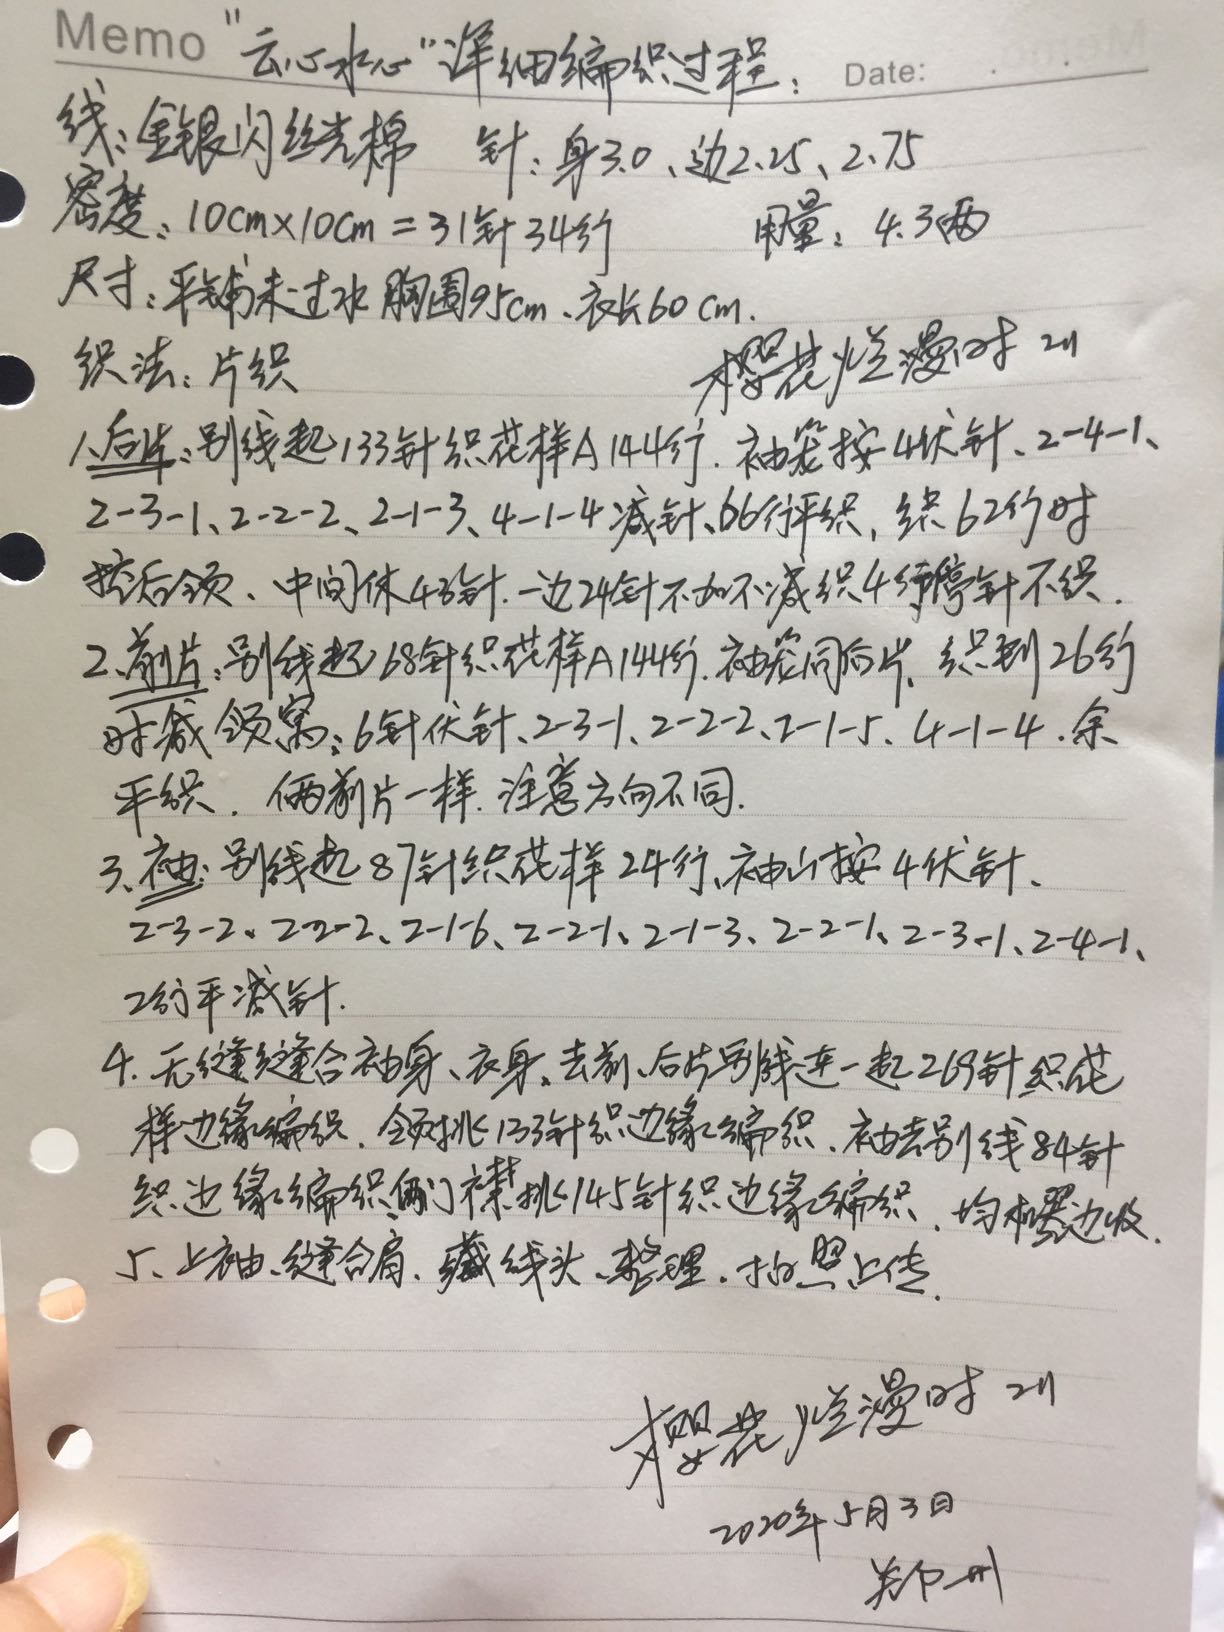 Memo "云心水心"详细编织过程: Date:
线:金银闪丝光棉 针:身3.0、边2.25、2.75
密度:10cm×10cm=31针34行 用量:4.3两
尺寸:平铺未过水 胸围95cm、衣长60cm.
织法:片织 樱花烂漫时211
1.后片:别线起133针织花样A144行.袖笼按4伏针、2-4-1、
2-3-1、2-2-2、2-1-3、4-1-4减针、66行平织,织62行时
挖后领、中间休43针.一边24针不加不减织4行停针不织.
2.前片:别线起68针织花样A144行.袖笼同后片,织到26行
时减领窝:6针伏针、2-3-1、2-2-2、2-1-5、4-1-4.余
平织.俩前片一样.注意方向不同.
3、袖:别线起87针织花样24行、袖山按4伏针、
2-3-2、2-2-2、2-1-6、2-2-1、2-1-3、2-2-1、2-3-1、2-4-1、
2行平减针.
4.无缝缝合袖身、衣身、去前、后片别线连一起269针织花
样边缘编织.领挑133针织边缘编织.袖去别线84针
织边缘编织、俩门襟挑145针织边缘编织.均机器边收.
5、上袖、缝合肩、藏线头、整理.拍照上传.
樱花烂漫时211
2020年5月3日
郑州